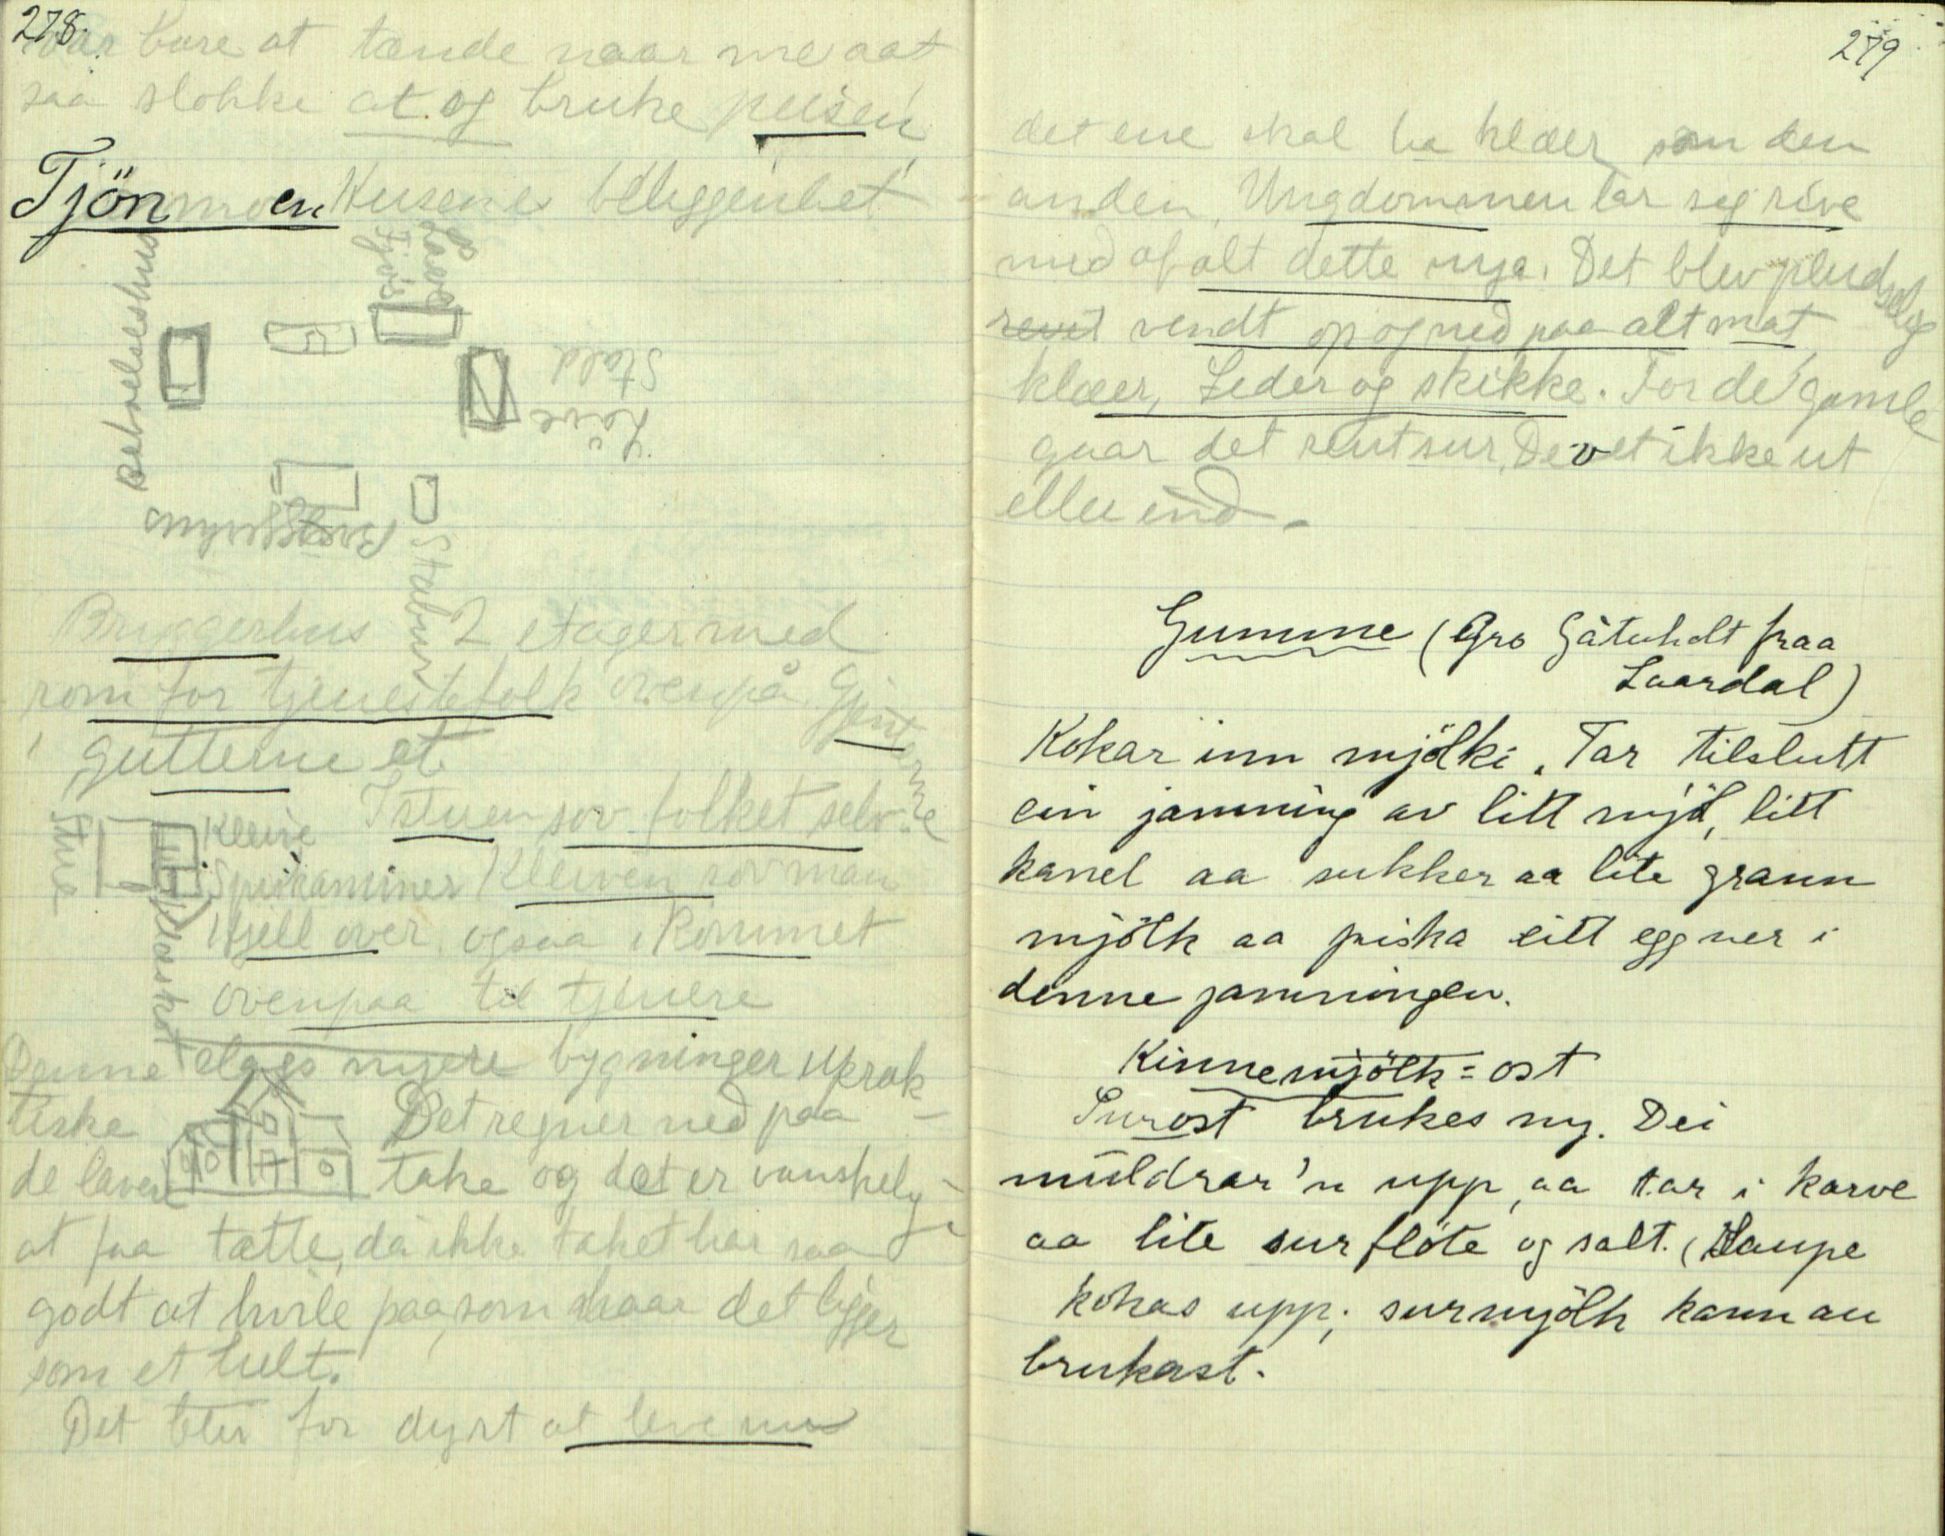 278.
var bare at tænde naar me aat
saa slokke at og bruke peisen
Tjönmoen Husene beliggenhet
Beboelseshus
Fjös
Stald
Löive
Bryggerhus
Stabur
Bryggerhus 2 etager med
rom for tjenestefolk ovenpå Gjenterne
i gutterne et
I stuen sov folket selv.
Stue
Kleive
Spiskammer Kleiven sov man
Kjell over, ogsaa i Rommet
ovenpaa til tjenere
Denne slags nyere bygninger uprak-
tiske Det regner ned paa
de lavere take og det er vanskelig
at faa tætte, da ikke taket har saa
godt at hvile paa, som naar det ligger
som et helt.
Det blir for dyrt at leve nu
279
det ene skal ha klæer som den
anden, Ungdommen lar seg rive
med af alt dette nye. Det blev pludselig
revet vendt op og ned paa alt mat,
klæer, Seder og skikke. For de gamle
gaar det rent sur, De vet ikke ut
eller ind -
Gumme (Gro Gåtuholt fraa
Laardal)
Kokar inn mjölki. Tar tilslutt
ein jamning av litt mjöl, litt
kanel aa sukker aa lite grann
mjölk aa piska eitt egg ner i
denne jamningen.
Kinnemjölk = ost
Surost brukes ny. Dei
muldrar'n upp, aa tar i karve
aa lite surflöte og salt. (Saupe
kokas upp; surmjölk kann au
brukast.